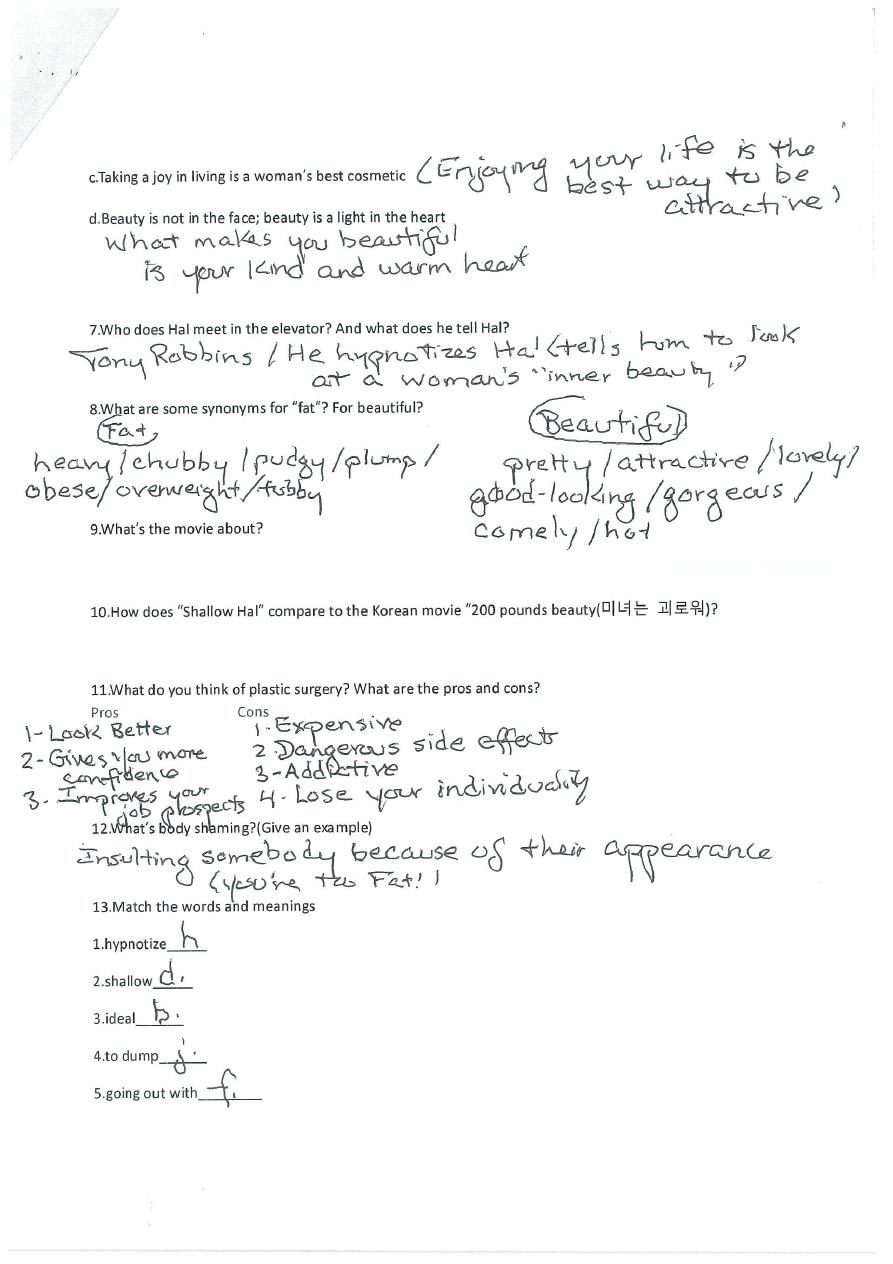 c.Taking a joy in living is a woman's best cosmetic (Enjoying your life is the
best way to be
attractive)
d.Beauty is not in the face; beauty is a light in the heart
What makes you beautiful
is your kind and warm heart
7.Who does Hal meet in the elevator? And what does he tell Hal?
Tony Robbins / He hypnotizes Hal (tells him to look
at a woman's "inner beauty")
8.What are some synonyms for "fat"? For beautiful?
Fat
heavy/chubby/pudgy/plump/
obese/overweight/tubby
Beautiful
pretty/attractive/lovely/
good-looking/gorgeous/
comely/hot
9.What's the movie about?
10.How does "Shallow Hal" compare to the Korean movie "200 pounds beauty(미녀는 괴로워)?
11.What do you think of plastic surgery? What are the pros and cons?
Pros
1-Look Better
2-Gives you more
confidence
3-Improves your
job prospects
Cons
1-Expensive
2.Dangerous side effects
3-Addictive
4-Lose your individuality
12.What's body shaming?(Give an example)
Insulting somebody because of their appearance
(you're too Fat!)
13.Match the words and meanings
1.hypnotize h
2.shallow d.
3.ideal b.
4.to dump j.
5.going out with f.